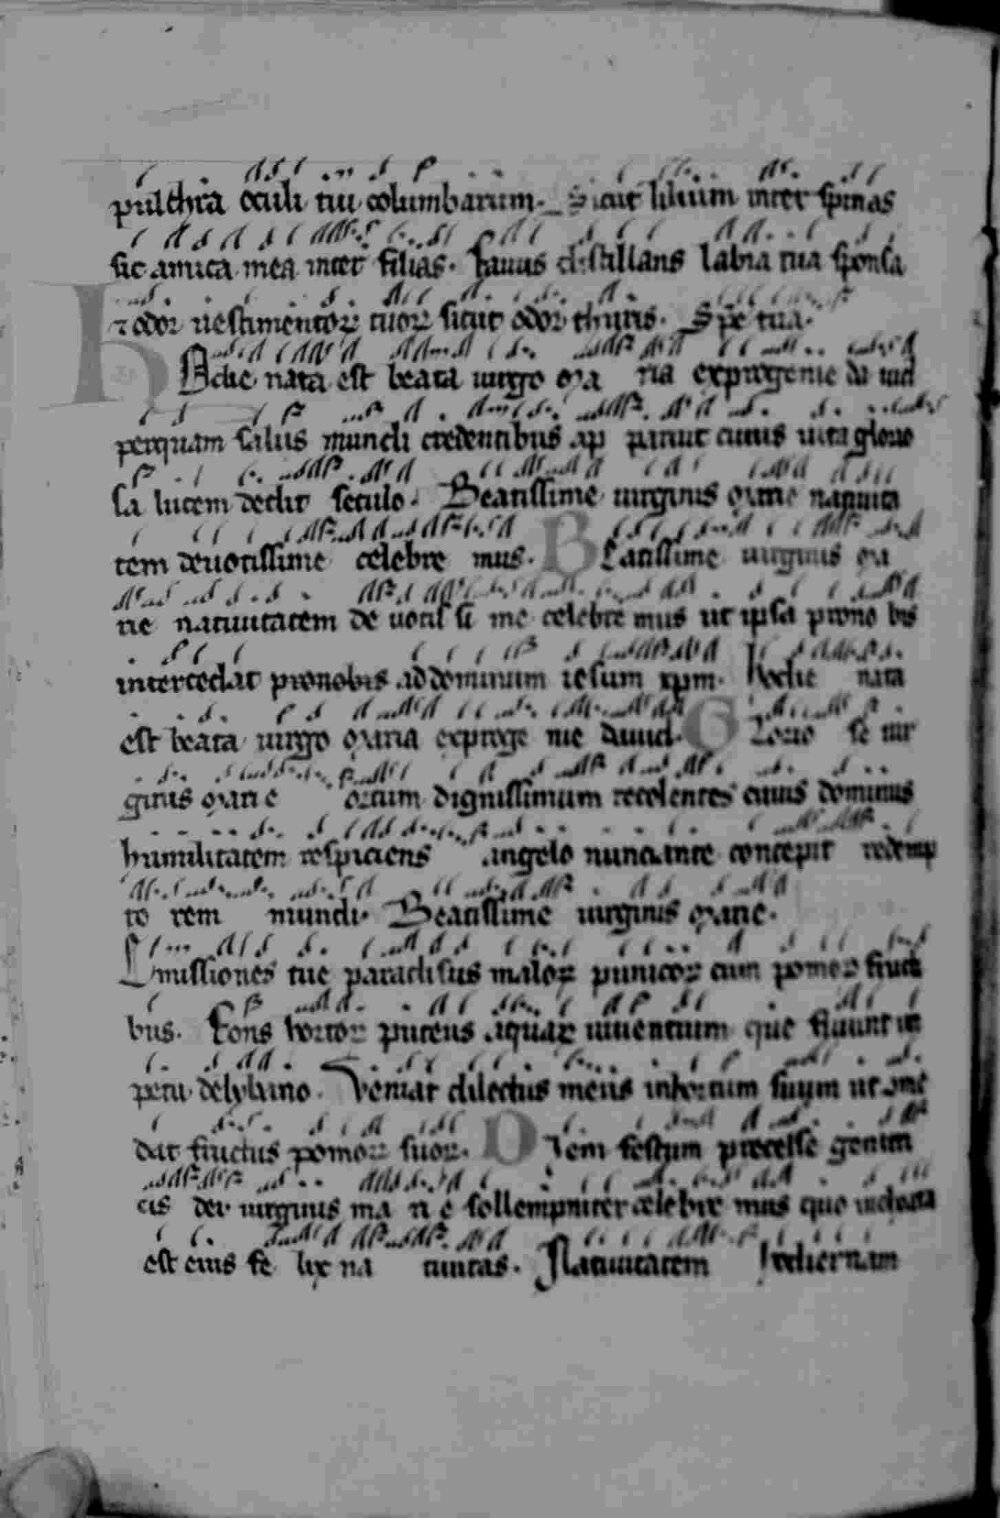 pulchra oculi tui columbarum. Sicut lilium inter spinas
sic amica mea inter filias. Fauus distillans labia tua sponsa
⁊ odor uestimentoꝝ tuoꝝ sicut odor thuris. Spē tua.
Hodie nata est beata uirgo ma ria ex progenie da uid
per quam salus mundi credentibus ap paruit cuius uita glorio
sa lucem dedit seculo. Beatissime uirginis marie natiuita
tem deuotissime celebre mus. Beatissime uirginis ma
rie natiuitatem de uotis si me celebre mus ut ipsa pro no bis
intercedat pro nobis ad dominum iesum xpm. Hodie nata
est beata uirgo maria ex proge nie dauid. Glorio se uir
ginis marie ortum dignissimum recolentes cuius dominus
humilitatem respiciens angelo nunciante concepit redemp
to rem mundi. Beatissime uirginis marie.
Emissiones tue paradisus maloꝝ punicoꝝ cum pomoꝝ fructi
bus. Fons hortoꝝ puteus aquaꝝ uiuentium que fluunt in
petu de lybano. Veniat dilectus meus in hortum suum ut ome
dat fructus pomoꝝ suoꝝ. Diem festum precelse genitri
cis dei uirginis ma ri e sollempniter celebre mus quo inchoata
est eius fe lix na tiuitas. Natiuitatem hodiernam